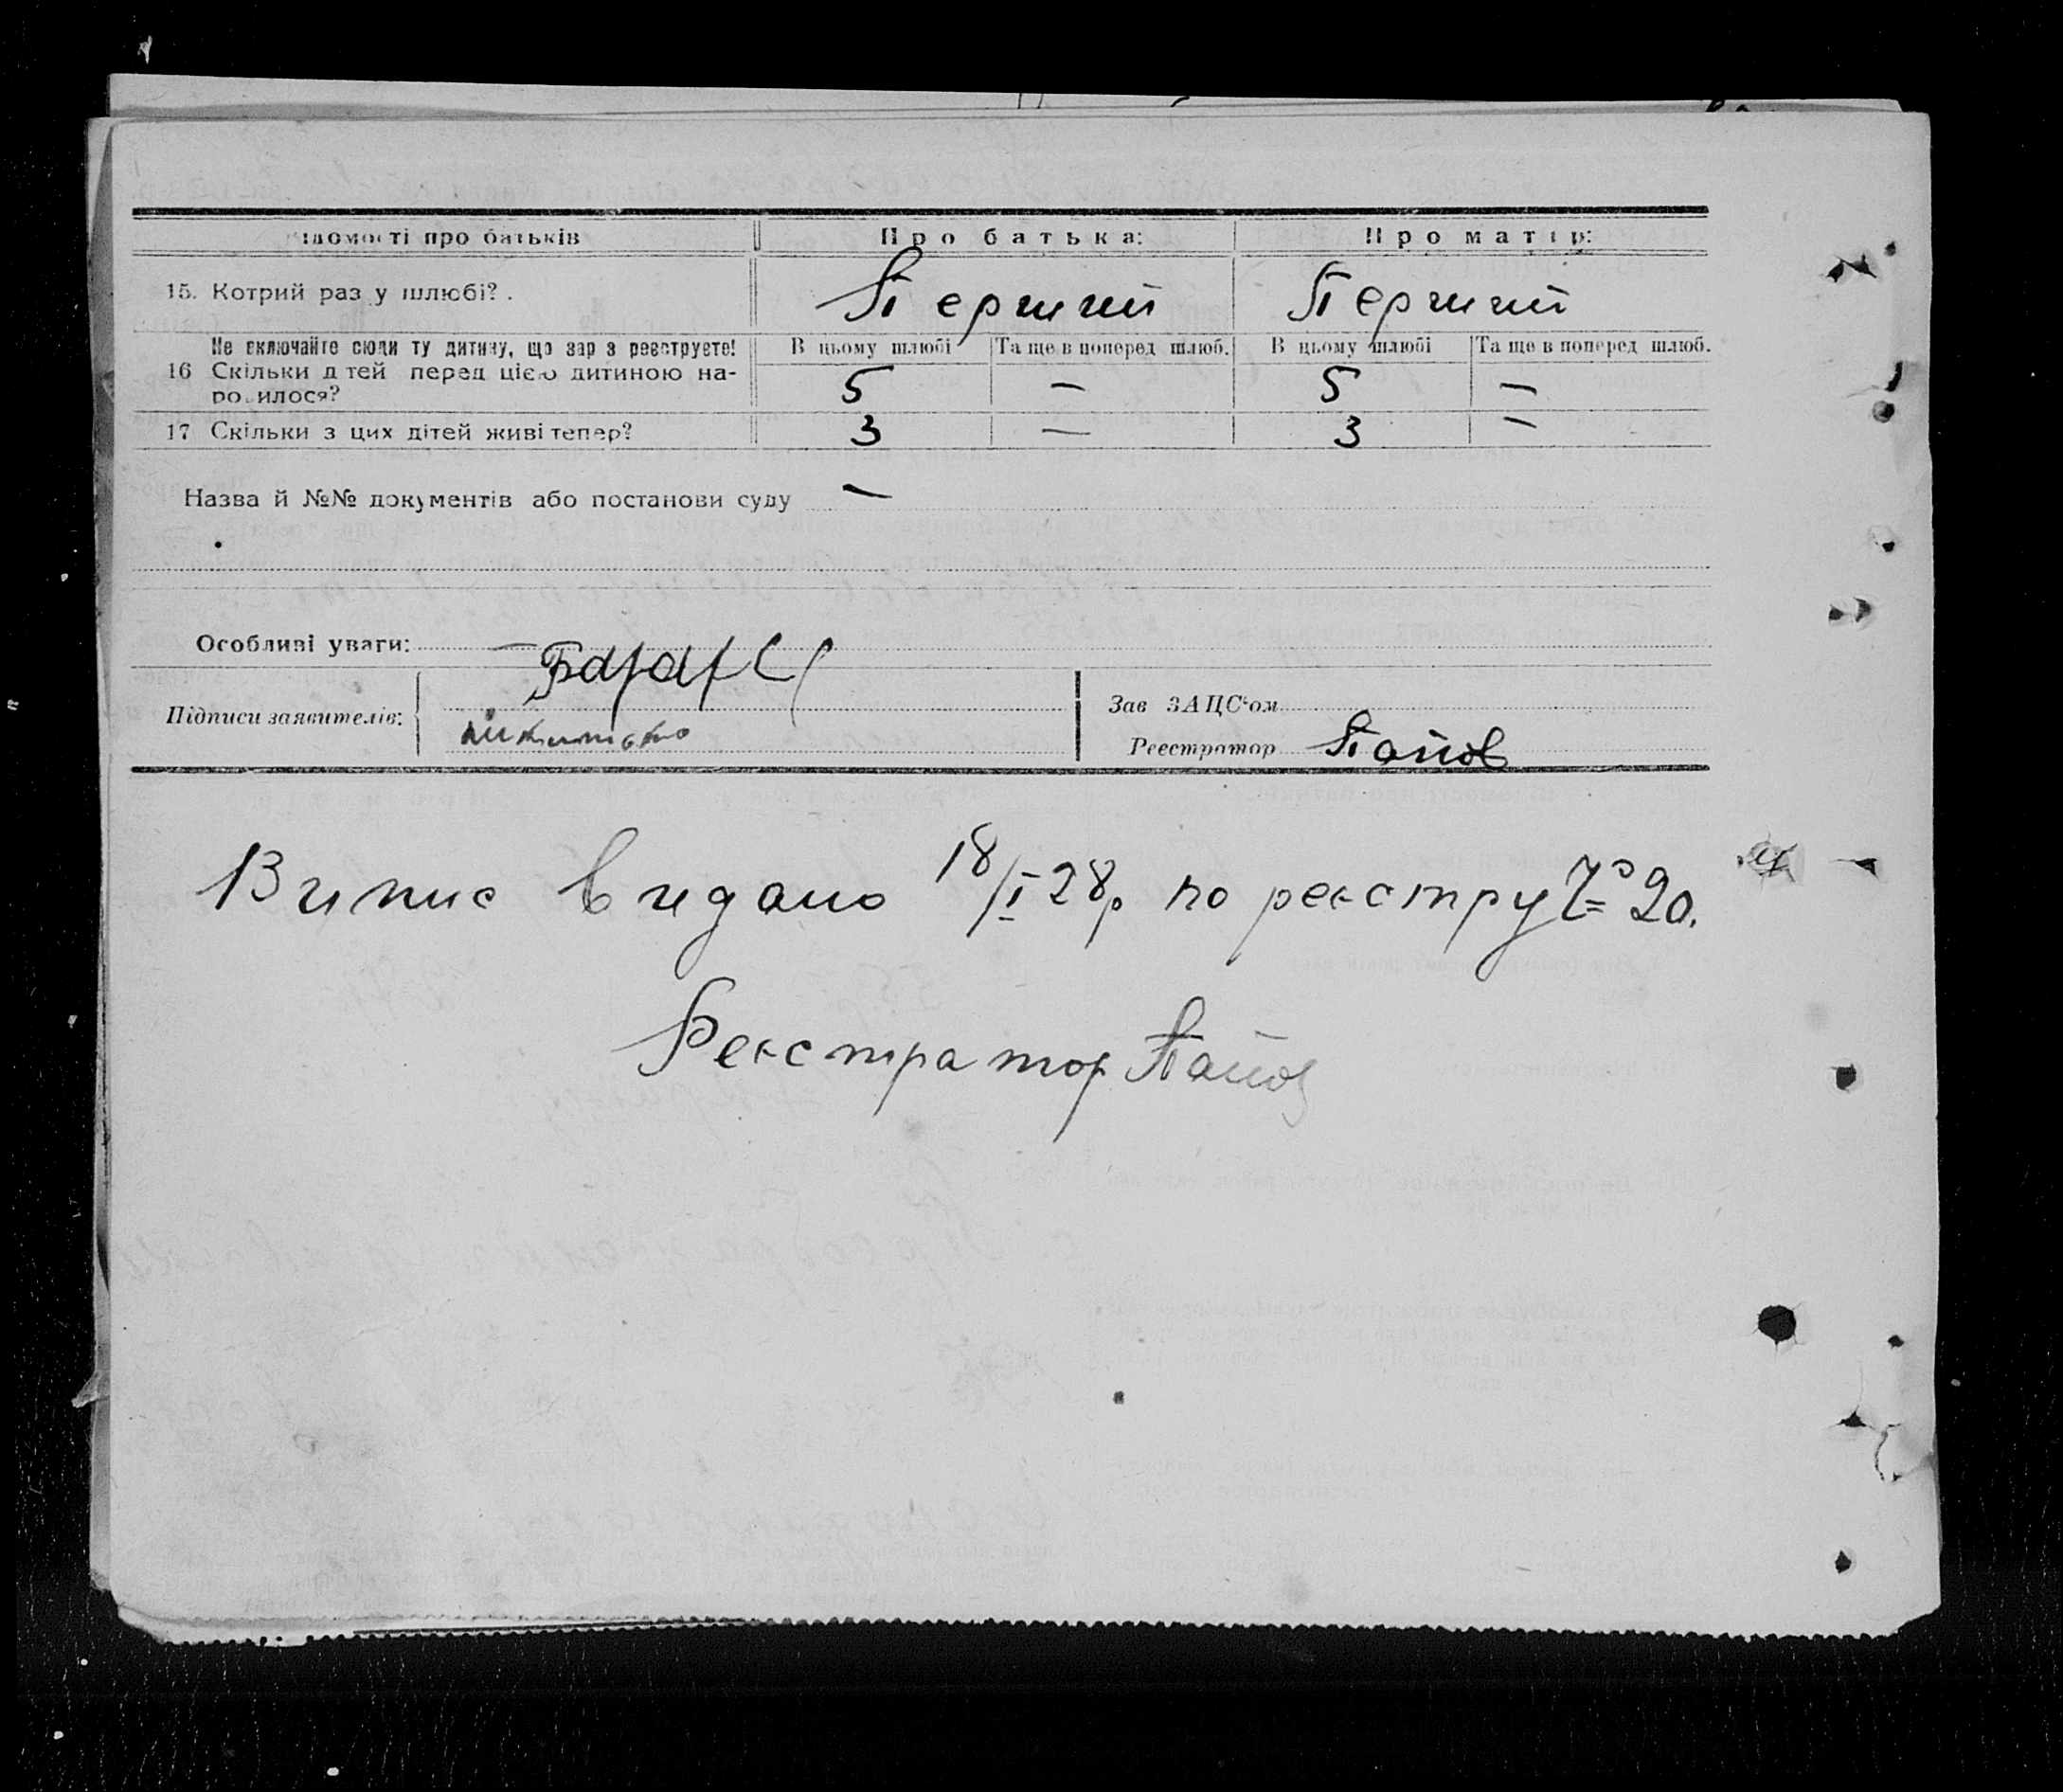 Відомості про батьків Про батька: Про матір:
15. Котрий раз у шлюбі? . Перший Перший
Не включайте сюди ту дитину, що зараз реєструєте! В цьому шлюбі Та ще в поперед шлюб. В цьому шлюбі Та ще в поперед шлюб.
16 Скільки дітей перед цією дитиною на-
родилося? 5 — 5 —
17 Скільки з цих дітей живі тепер? 3 — 3 —
Назва й №№ документів або постанови суду —
Особливі уваги: —
Підписи заявителів:
Зав ЗАЦС'ом
Реєстратор Папов
Випис видано 18/I 28р по реєстру № 20.
Реєстратор Папов